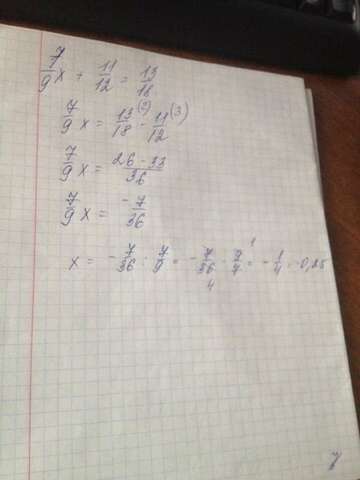 7/9 x + 11/12 = 13/18
7/9 x = 13/18 (2) - 11/12 (3)
7/9 x = 26 - 33/36
7/9 x = - 7/36
x = - 7/36 : 7/9 = - 7/36 · 9/7 = - 1/4 = -0,25
4 1